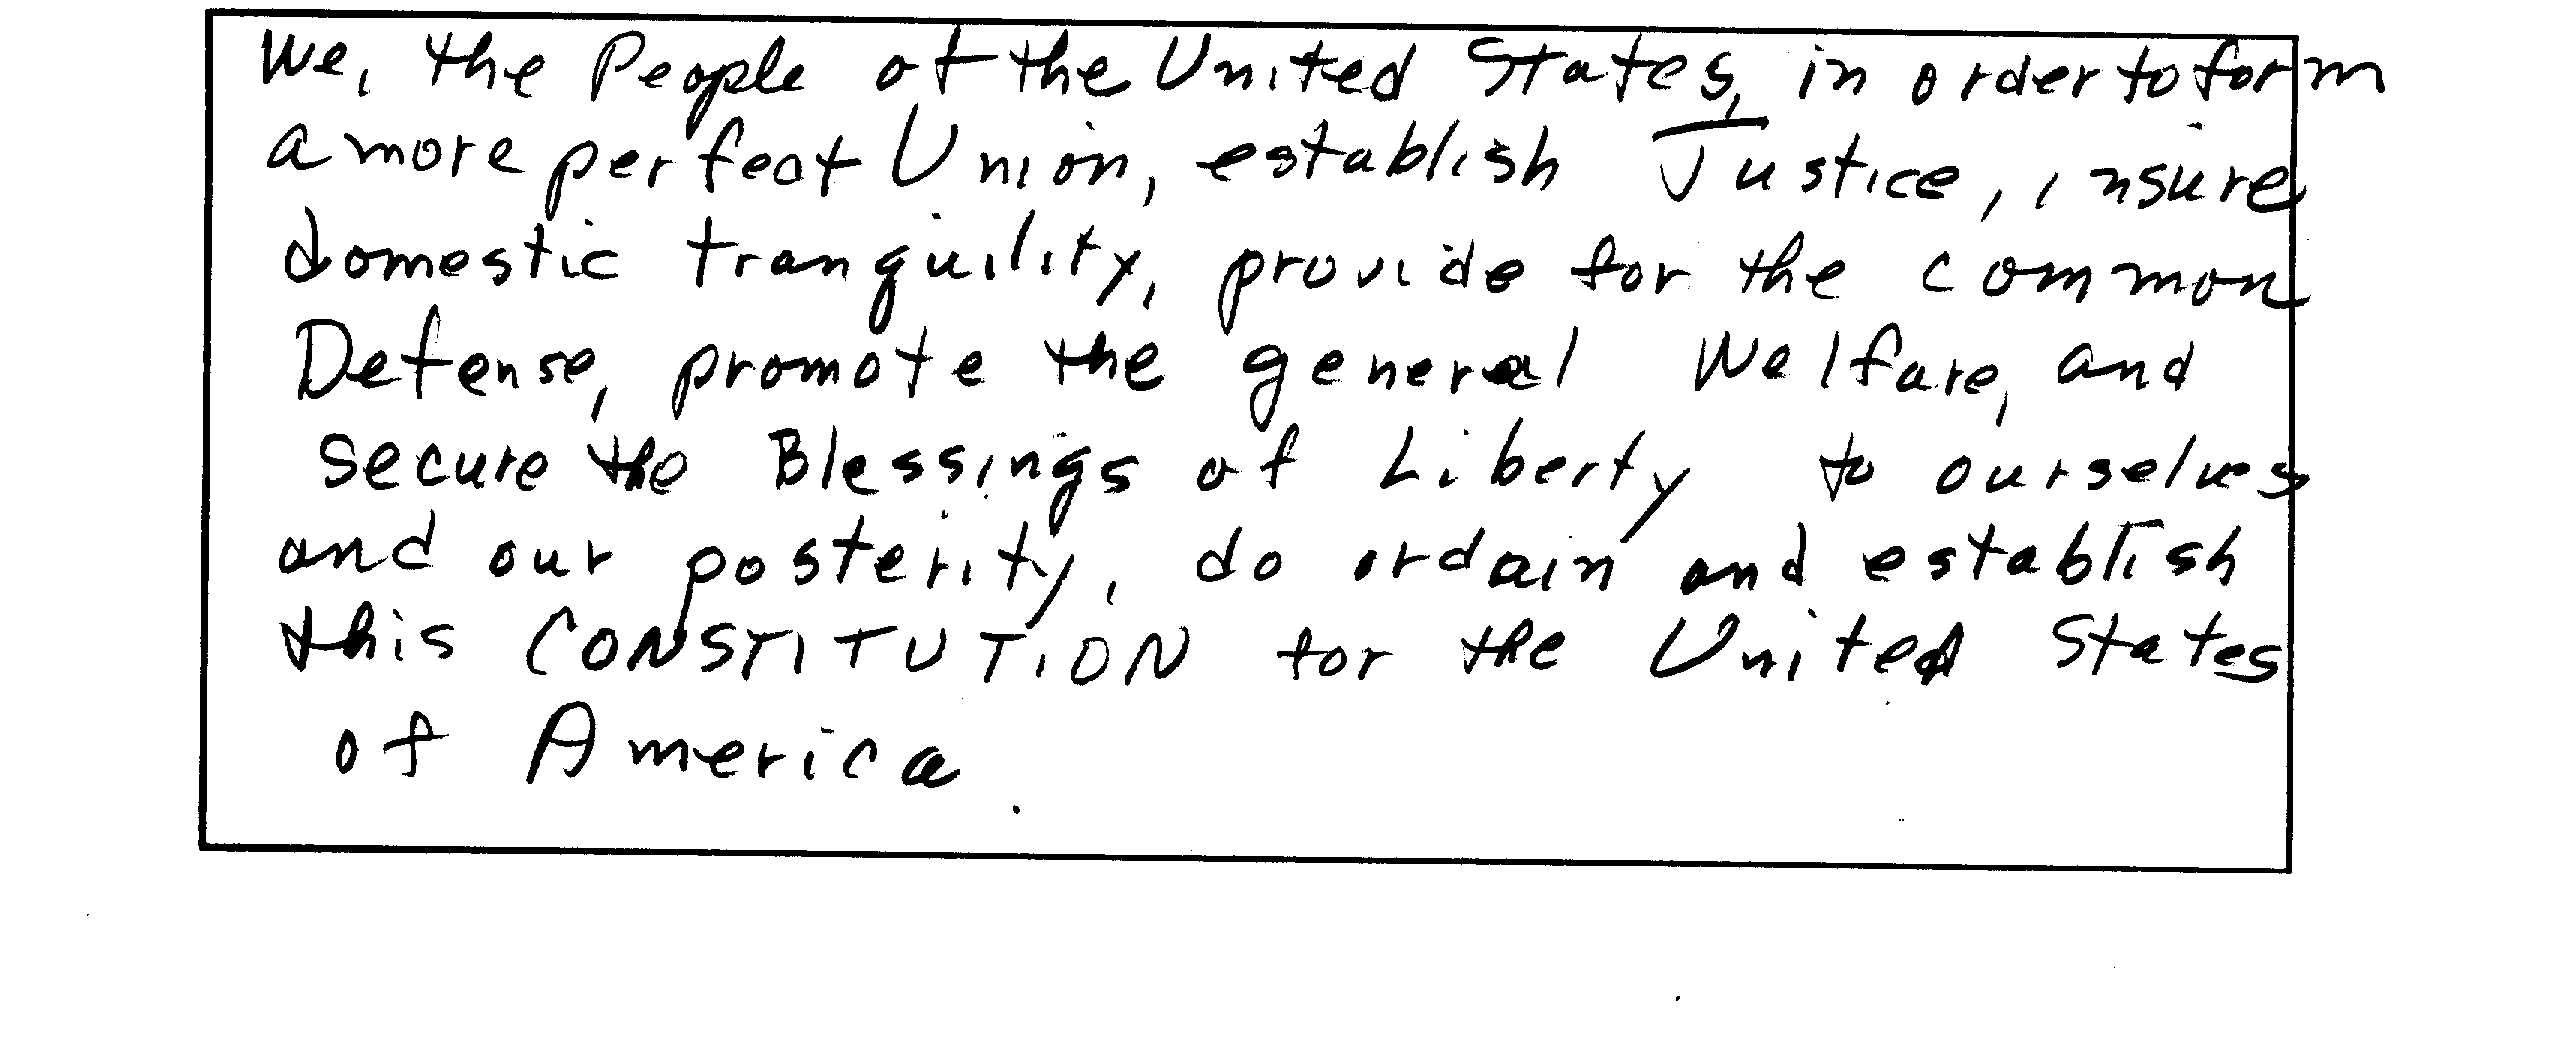 We, the People of the United States, in order to form
a more perfect Union, establish Justice, insure
domestic tranquility, provide for the common
Defense, promote the general Welfare, and
secure the Blessings of Liberty to ourselves
and our posterity, do ordain and establish
this CONSTITUTION for the United States
of America